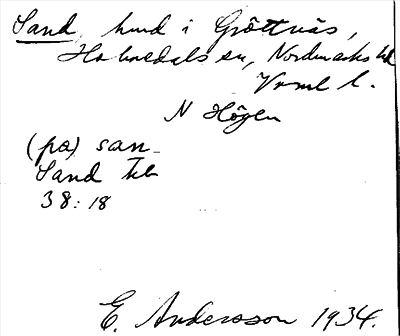 Sand, hmd i Gröttnäs,
Holmedals sn, Nordmarks hd
Vrml l.
N Högen
(på) san
Sand kb
38:18
E. Andersson 1934.